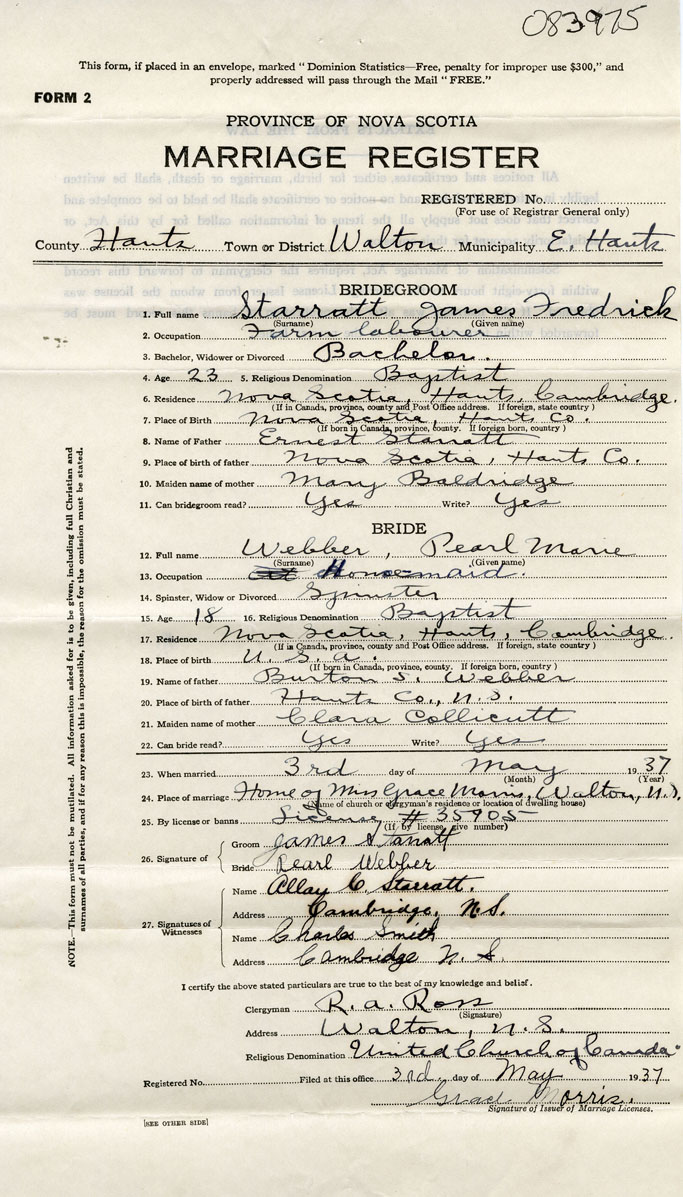 083975
This form, if placed in an envelope, marked "Dominion Statistics—Free, penalty for improper use $300," and
properly addressed will pass through the Mail "FREE."
FORM 2
PROVINCE OF NOVA SCOTIA
MARRIAGE REGISTER
REGISTERED No.
(For use of Registrar General only)
County Hants Town or District Walton Municipality E. Hants
BRIDEGROOM
1. Full name Starratt James Fredrick
(Surname) (Given name)
2. Occupation Farm labourer
3. Bachelor, Widower or Divorced Bachelor.
4. Age 23 5. Religious Denomination Baptist
6. Residence Nova Scotia, Hants, Cambridge.
(If in Canada, province, county and Post Office address. If foreign, state country)
7. Place of Birth Nova Scotia, Hants Co.
(If born in Canada, province, county. If foreign born, country)
8. Name of Father Ernest Starratt
9. Place of birth of father Nova Scotia, Hants Co.
10. Maiden name of mother Mary Baldridge
11. Can bridegroom read? Yes Write? Yes
BRIDE
12. Full name Webber, Pearl Marie
(Surname) (Given name)
13. Occupation Housemaid.
14. Spinster, Widow or Divorced Spinster
15. Age 18 16. Religious Denomination Baptist
17. Residence Nova Scotia, Hants, Cambridge.
(If in Canada, province, county and Post Office address. If foreign, state country)
18. Place of birth U. S. A.
(If born in Canada, province, county. If foreign born, country)
19. Name of father Burton S. Webber
20. Place of birth of father Hants Co., N.S.
21. Maiden name of mother Clara Collicutt
22. Can bride read? Yes Write? Yes
23. When married 3rd day of May 1937
(Month) (Year)
24. Place of marriage Home of Miss Grace Morris, (Walton, N.S.
(Name of church or clergyman's residence or location of dwelling house)
25. By license or banns License # 35905
(If by license, give number)
26. Signature of
Groom James Starratt
Bride Pearl Webber
27. Signatures of Witnesses
Name Allay C. Starratt.
Address Cambridge, N.S.
Name Charles Smith
Address Cambridge N. S.
I certify the above stated particulars are true to the best of my knowledge and belief.
Clergyman R. A. Ross
(Signature)
Address Walton, N.S.
Religious Denomination United Church of Canada
Registered No. Filed at this office 3rd day of May 1937
Grace Morris.
Signature of Issuer of Marriage Licenses.
[SEE OTHER SIDE]
NOTE.—This form must not be mutilated. All information asked for is to be given, including full Christian and
surnames of all parties, and if for any reason this is impossible, the reason for the omission must be stated.